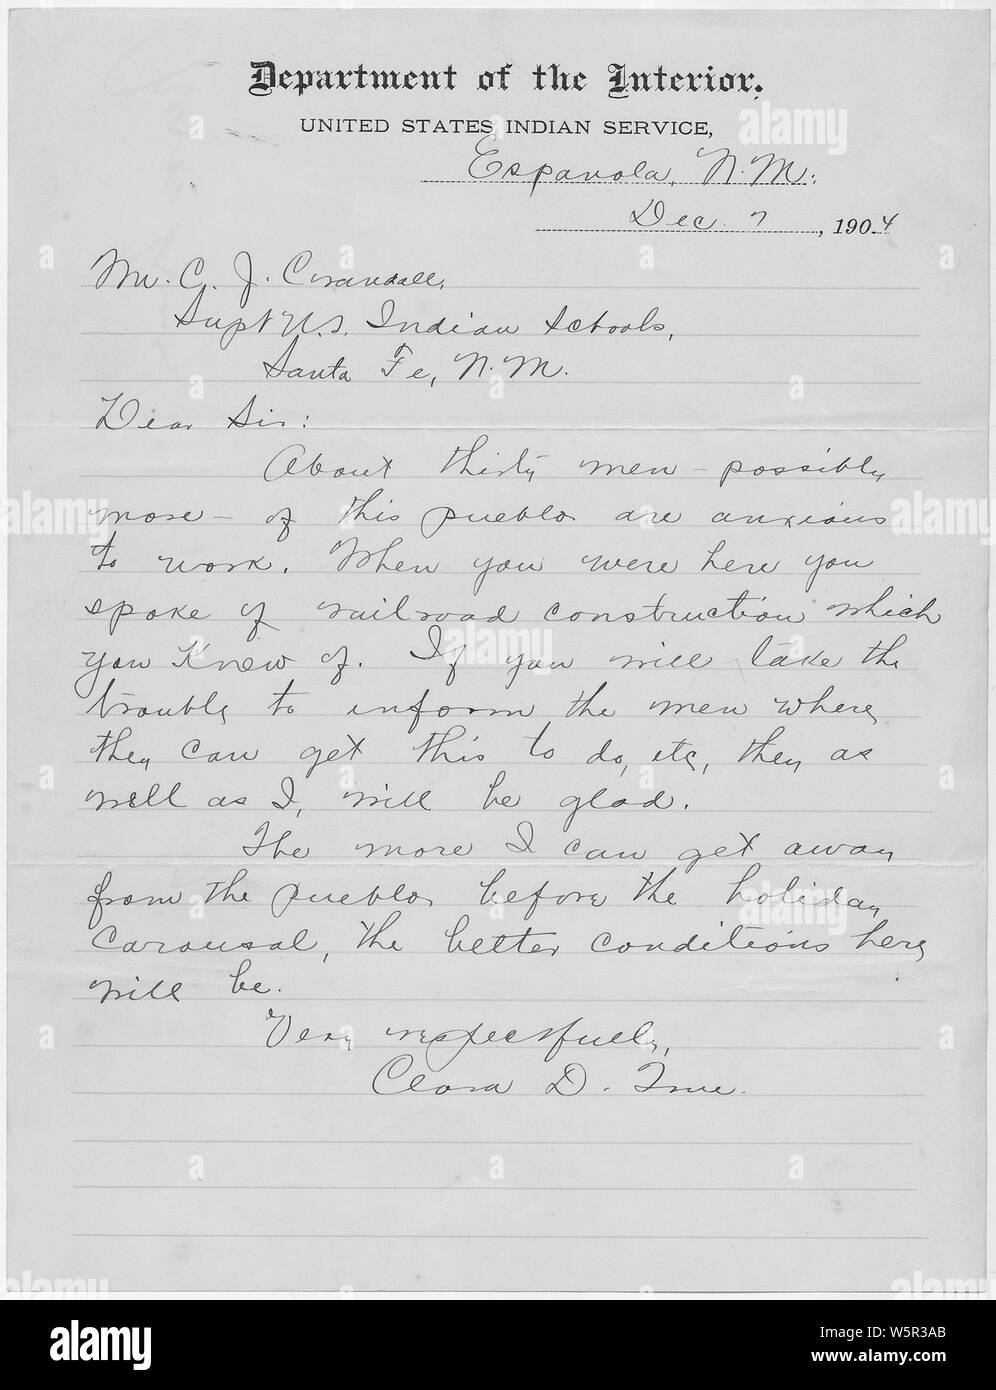 Department of the Interior.
UNITED STATES INDIAN SERVICE,
Espanola, N.M.
Dec. 7, 1904
Mr. C. J. Crandall,
Supt U.S. Indian Schools,
Santa Fe, N.M.
Dear Sir:
About thirty men - possibly
more - of this pueblo are anxious
to work. When you were here you
spoke of railroad construction which
you knew of. If you will take the
trouble to inform the men where
they can get this to do, etc, they as
well as I, will be glad.
The more I can get away
from the pueblo before the holiday
carousal, the better conditions here
will be.
Very respectfully,
Clara D. True.
alamy
Image ID: W5R3AB
www.alamy.com